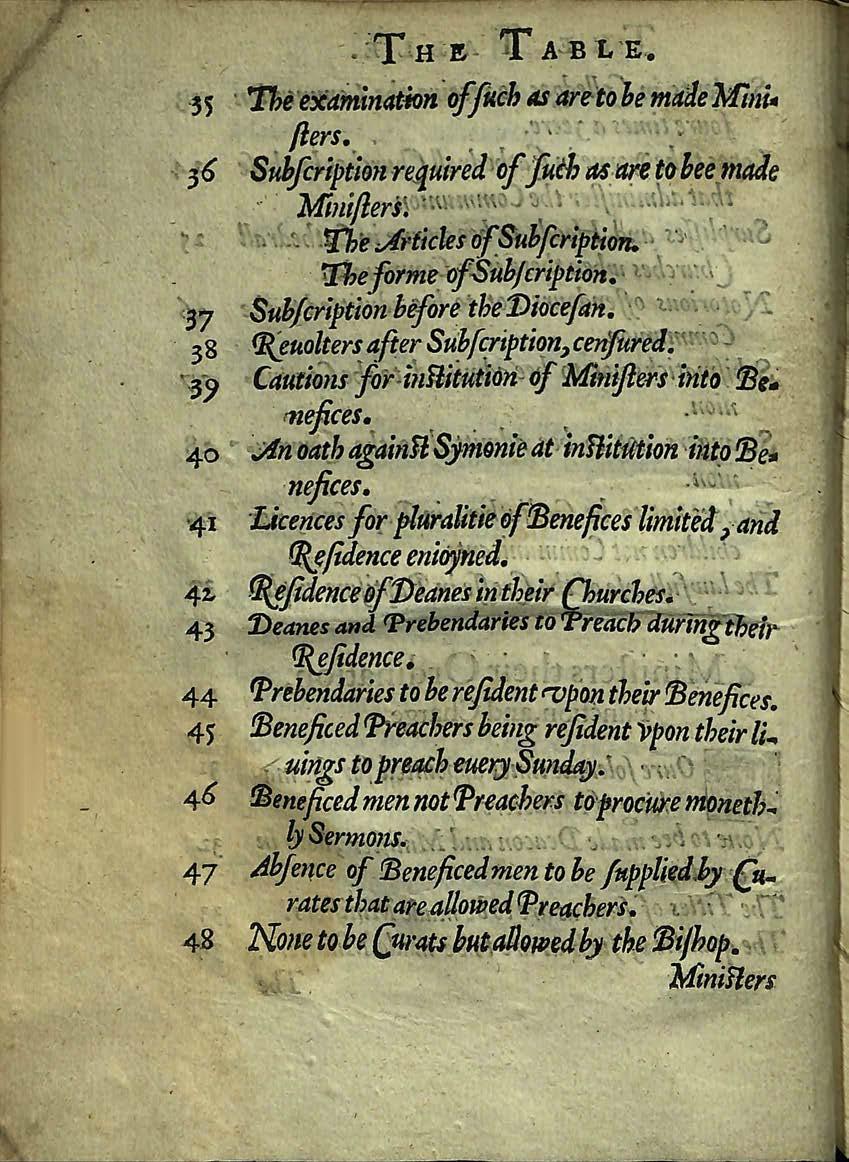 THE TABLE.
35 The examination of ſuch as are to be made Mini-
ſters.
36 Subſcription required of ſuch as are to bee made
Miniſters.
The Articles of Subſcription.
The forme of Subſcription.
37 Subſcription before the Dioceſan.
38 Reuolters after Subſcription, cenſured.
39 Cautions for inſtitution of Miniſters into Be-
nefices.
40 An oath againſt Symonie at inſtitution into Be-
nefices.
41 Licences for pluralitie of Benefices limited, and
Reſidence enioyned.
42 Reſidence of Deanes in their Churches.
43 Deanes and Prebendaries to Preach during their
Reſidence.
44 Prebendaries to be reſident vpon their Benefices.
45 Beneficed Preachers being reſident vpon their li-
uings to preach euery Sunday.
46 Beneficed men not Preachers to procure moneth-
ly Sermons.
47 Abſence of Beneficed men to be ſupplied by Cu-
rates that are allowed Preachers.
48 None to be Curats but allowed by the Biſhop.
Miniſters